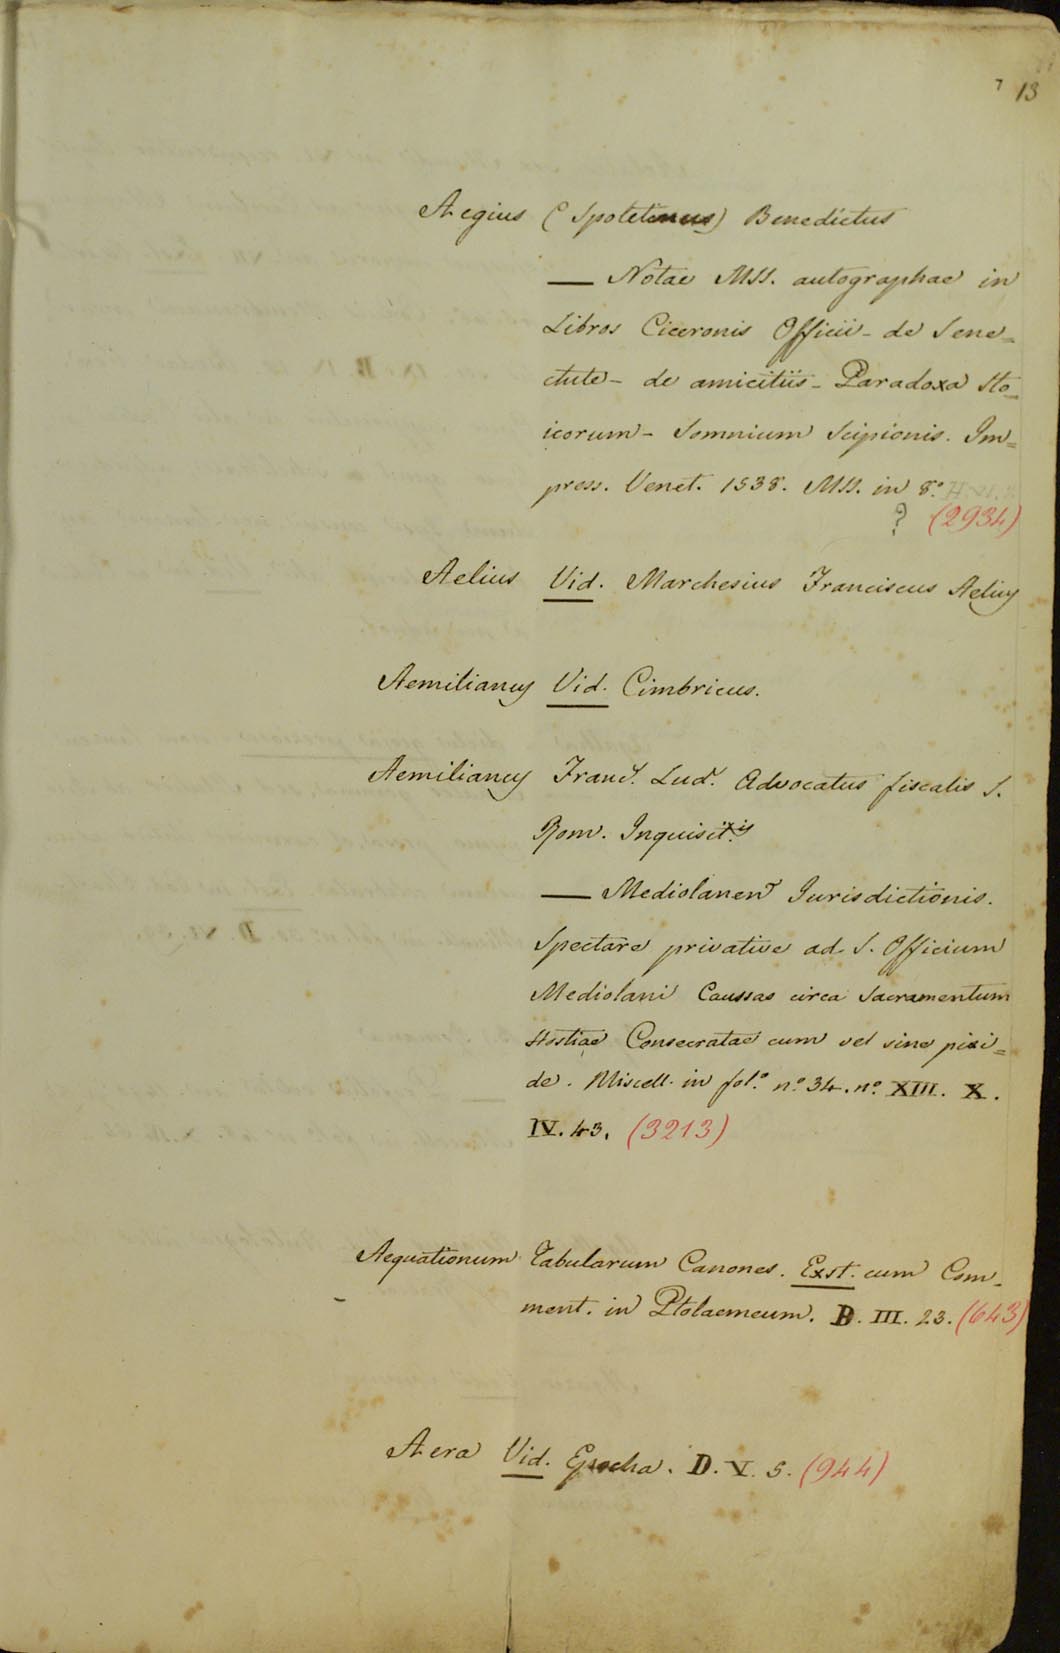 7 13
Aegius (Spoletinus) Benedictus
— Notae MSS. autographae in
Libros Ciceronis Officii - de Sene=
ctute - de amicitiis - Paradoxa Sto=
icorum - Somnium Scipionis. Im=
press. Venet. 1538. MSS. in 8.°
? (2934)
Aelius Vid. Marchesius Franciscus Aelius
Aemilianus Vid. Cimbricus.
Aemilianus Franc. Lud. Advocatus fiscalis S.
Rom. Inquisit.is
— Mediolanen Jurisdictionis.
Spectare privative ad S. Officium
Mediolani Caussas circa Sacramentum
Hostiae Consecratae cum vel sine pixi=
de. Miscell. in fol.° n.° 34. n.° XIII. X.
IV. 43. (3213)
Aequationum Tabularum Canones. Exst. cum Com-
ment. in Ptolaemeum. B. III. 23. (643)
Aera Vid. Epocha. D. V. 5. (944)